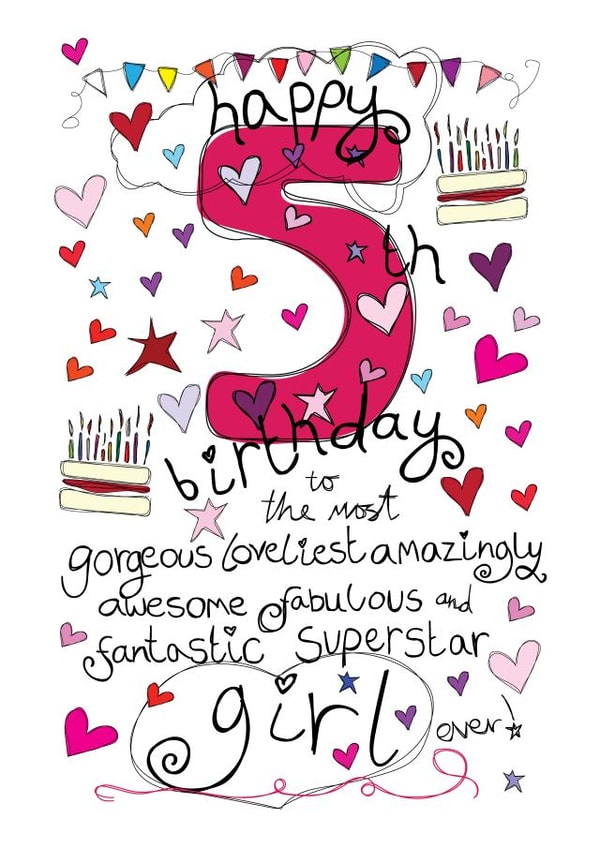 happy
5th
birthday
to
the most
gorgeous loveliest amazingly
awesome fabulous and
fantastic superstar
girl
ever!